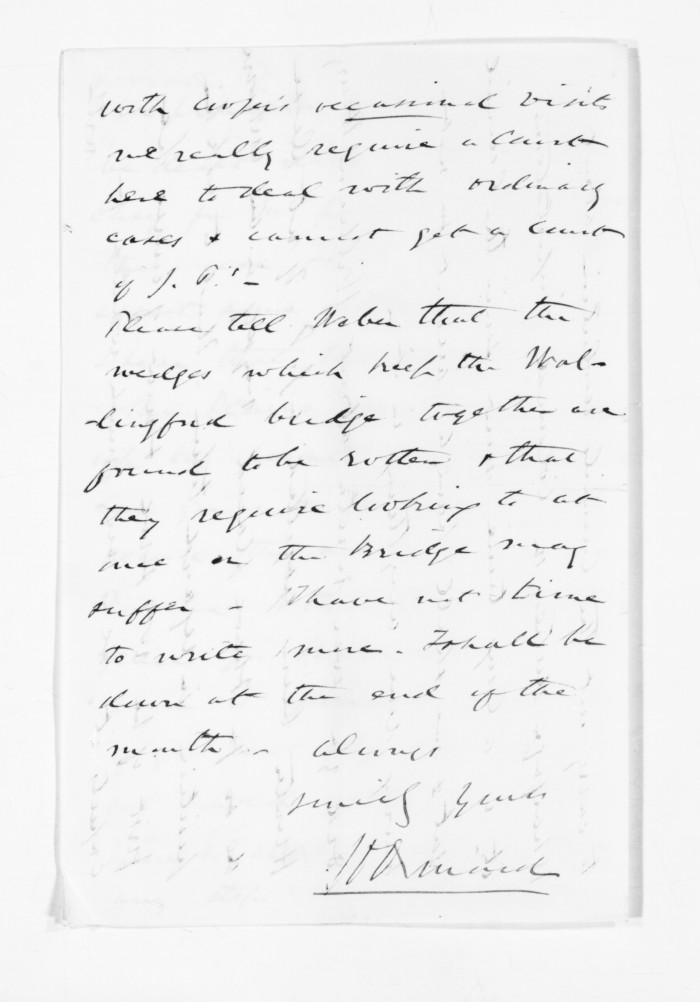 with Cooper's occasional visits
we really require a Court
here to deal with ordinary
cases & cannot get a Court
of J. P.s -
Please tell Weber that the
wedges which keep the Wal-
-lingford bridge together are
found to be rotten & that
they require looking to at
once or the Bridge may
suffer - I have not time
to write more. I shall be
down at the end of the
month - always
sincerely yours
J D Ormond